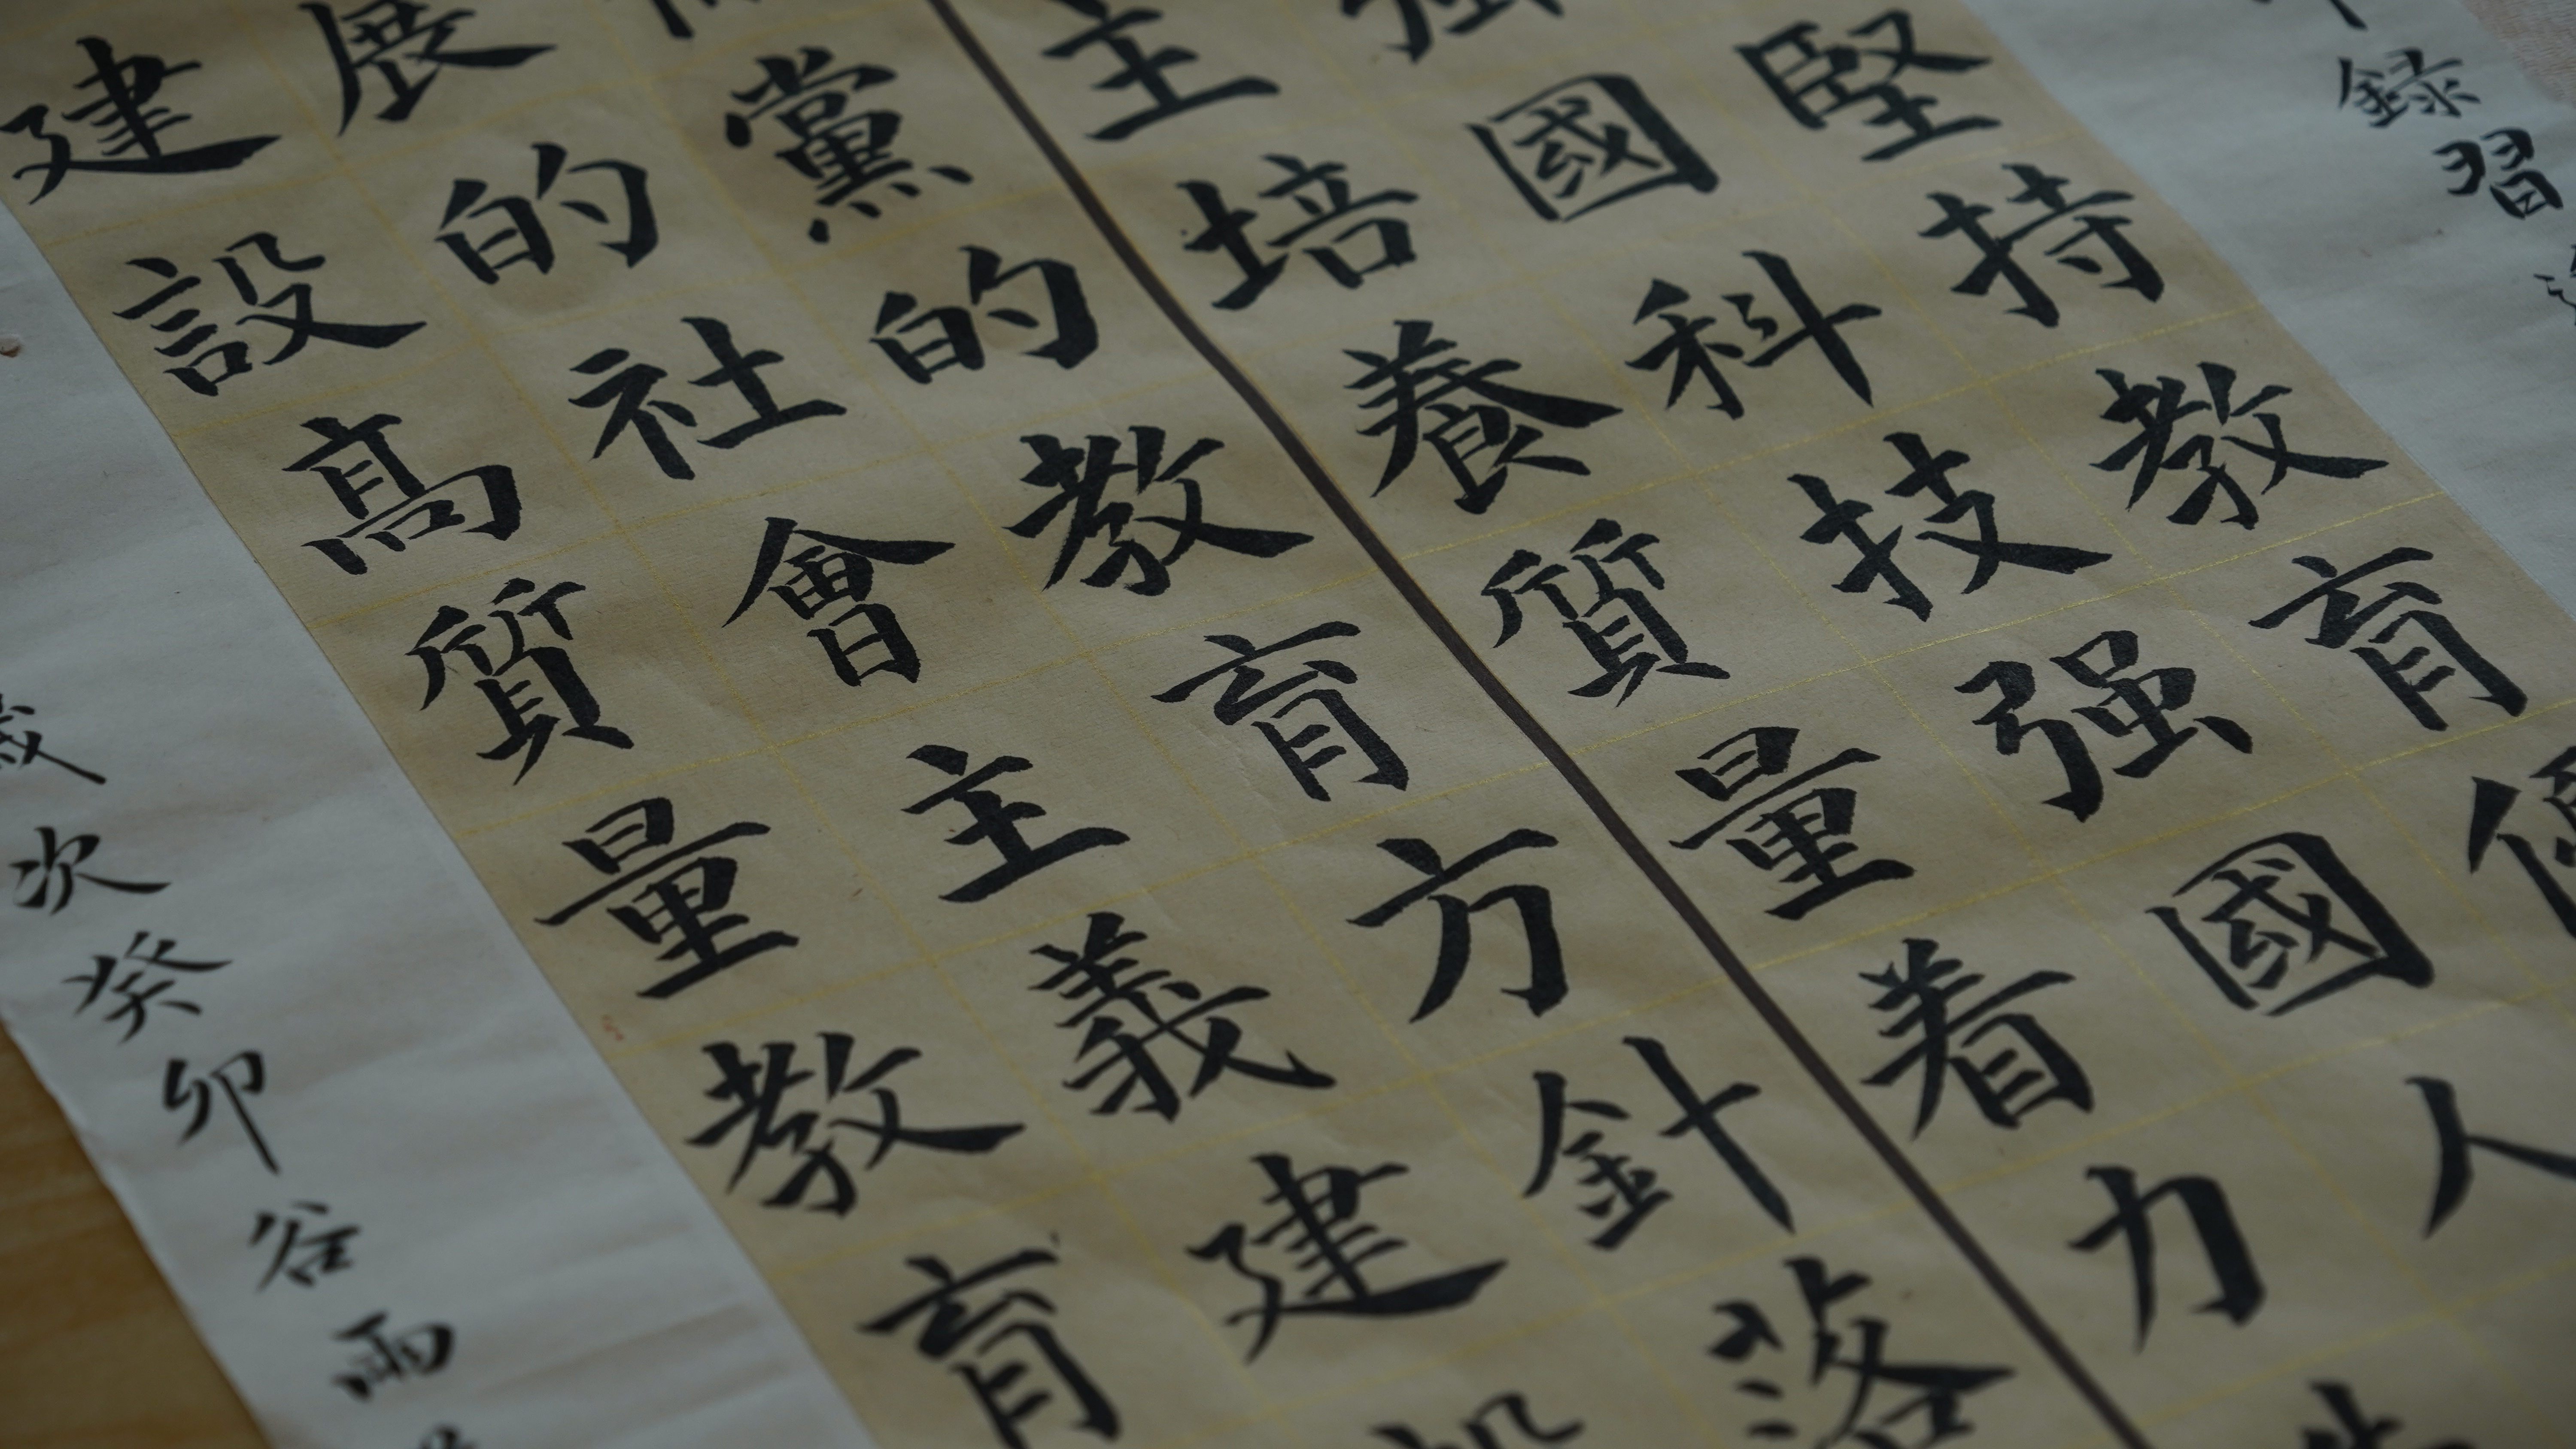 録習
堅持教育
國科技强國人
主培養質量着力
黨的教育方針落
展的社會主義建
建設高質量教育
歲次癸卯谷雨